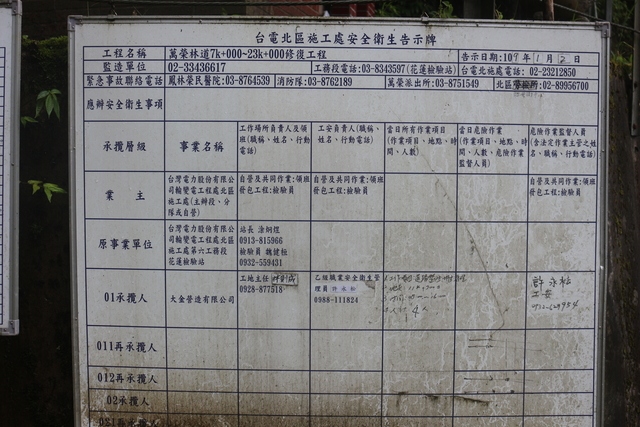 台電北區施工處安全衛生告示牌
工程名稱 萬榮林道7k+000~23k+000修復工程 告示日期:109年1月2日
監造單位 02-33436617 工務段電話:03-8343597(花蓮檢驗站) 台電北施處電話: 02-23212850
緊急事故聯絡電話 鳳林榮民醫院:03-8764539 消防隊:03-8762189 萬榮派出所:03-8751549 北區勞檢所:02-89956700
應辦安全衛生事項
承攬層級 事業名稱
工作場所負責人及領班(職稱、姓名、行動電話)
工安負責人(職稱、姓名、行動電話)
當日所有作業項目(作業項目、地點、時間、人數)
當日危險作業(作業項目、地點、時間、人數、危險作業監督人員)
危險作業監督人員(含法定作業主管之姓名、職稱、行動電話)
業 主
台灣電力股份有限公司輸變電工程處北區施工處(主辦段、分隊或自營)
自營及共同作業:領班
發包工程:檢驗員
自營及共同作業:領班
發包工程:檢驗員
自營及共同作業:領班
發包工程:檢驗員
原事業單位
台灣電力股份有限公司輸變電工程處北區施工處第六工務段花蓮檢驗站
站長 涂炯煜
0913-815966
檢驗員 魏健桓
0932-559431
01承攬人
大金營造有限公司
工地主任
0928-877518
乙級職業安全衛生管理員 許永松
0988-111824
4人
許永松
工安
011再承攬人
012再承攬人
02承攬人
021再承攬人